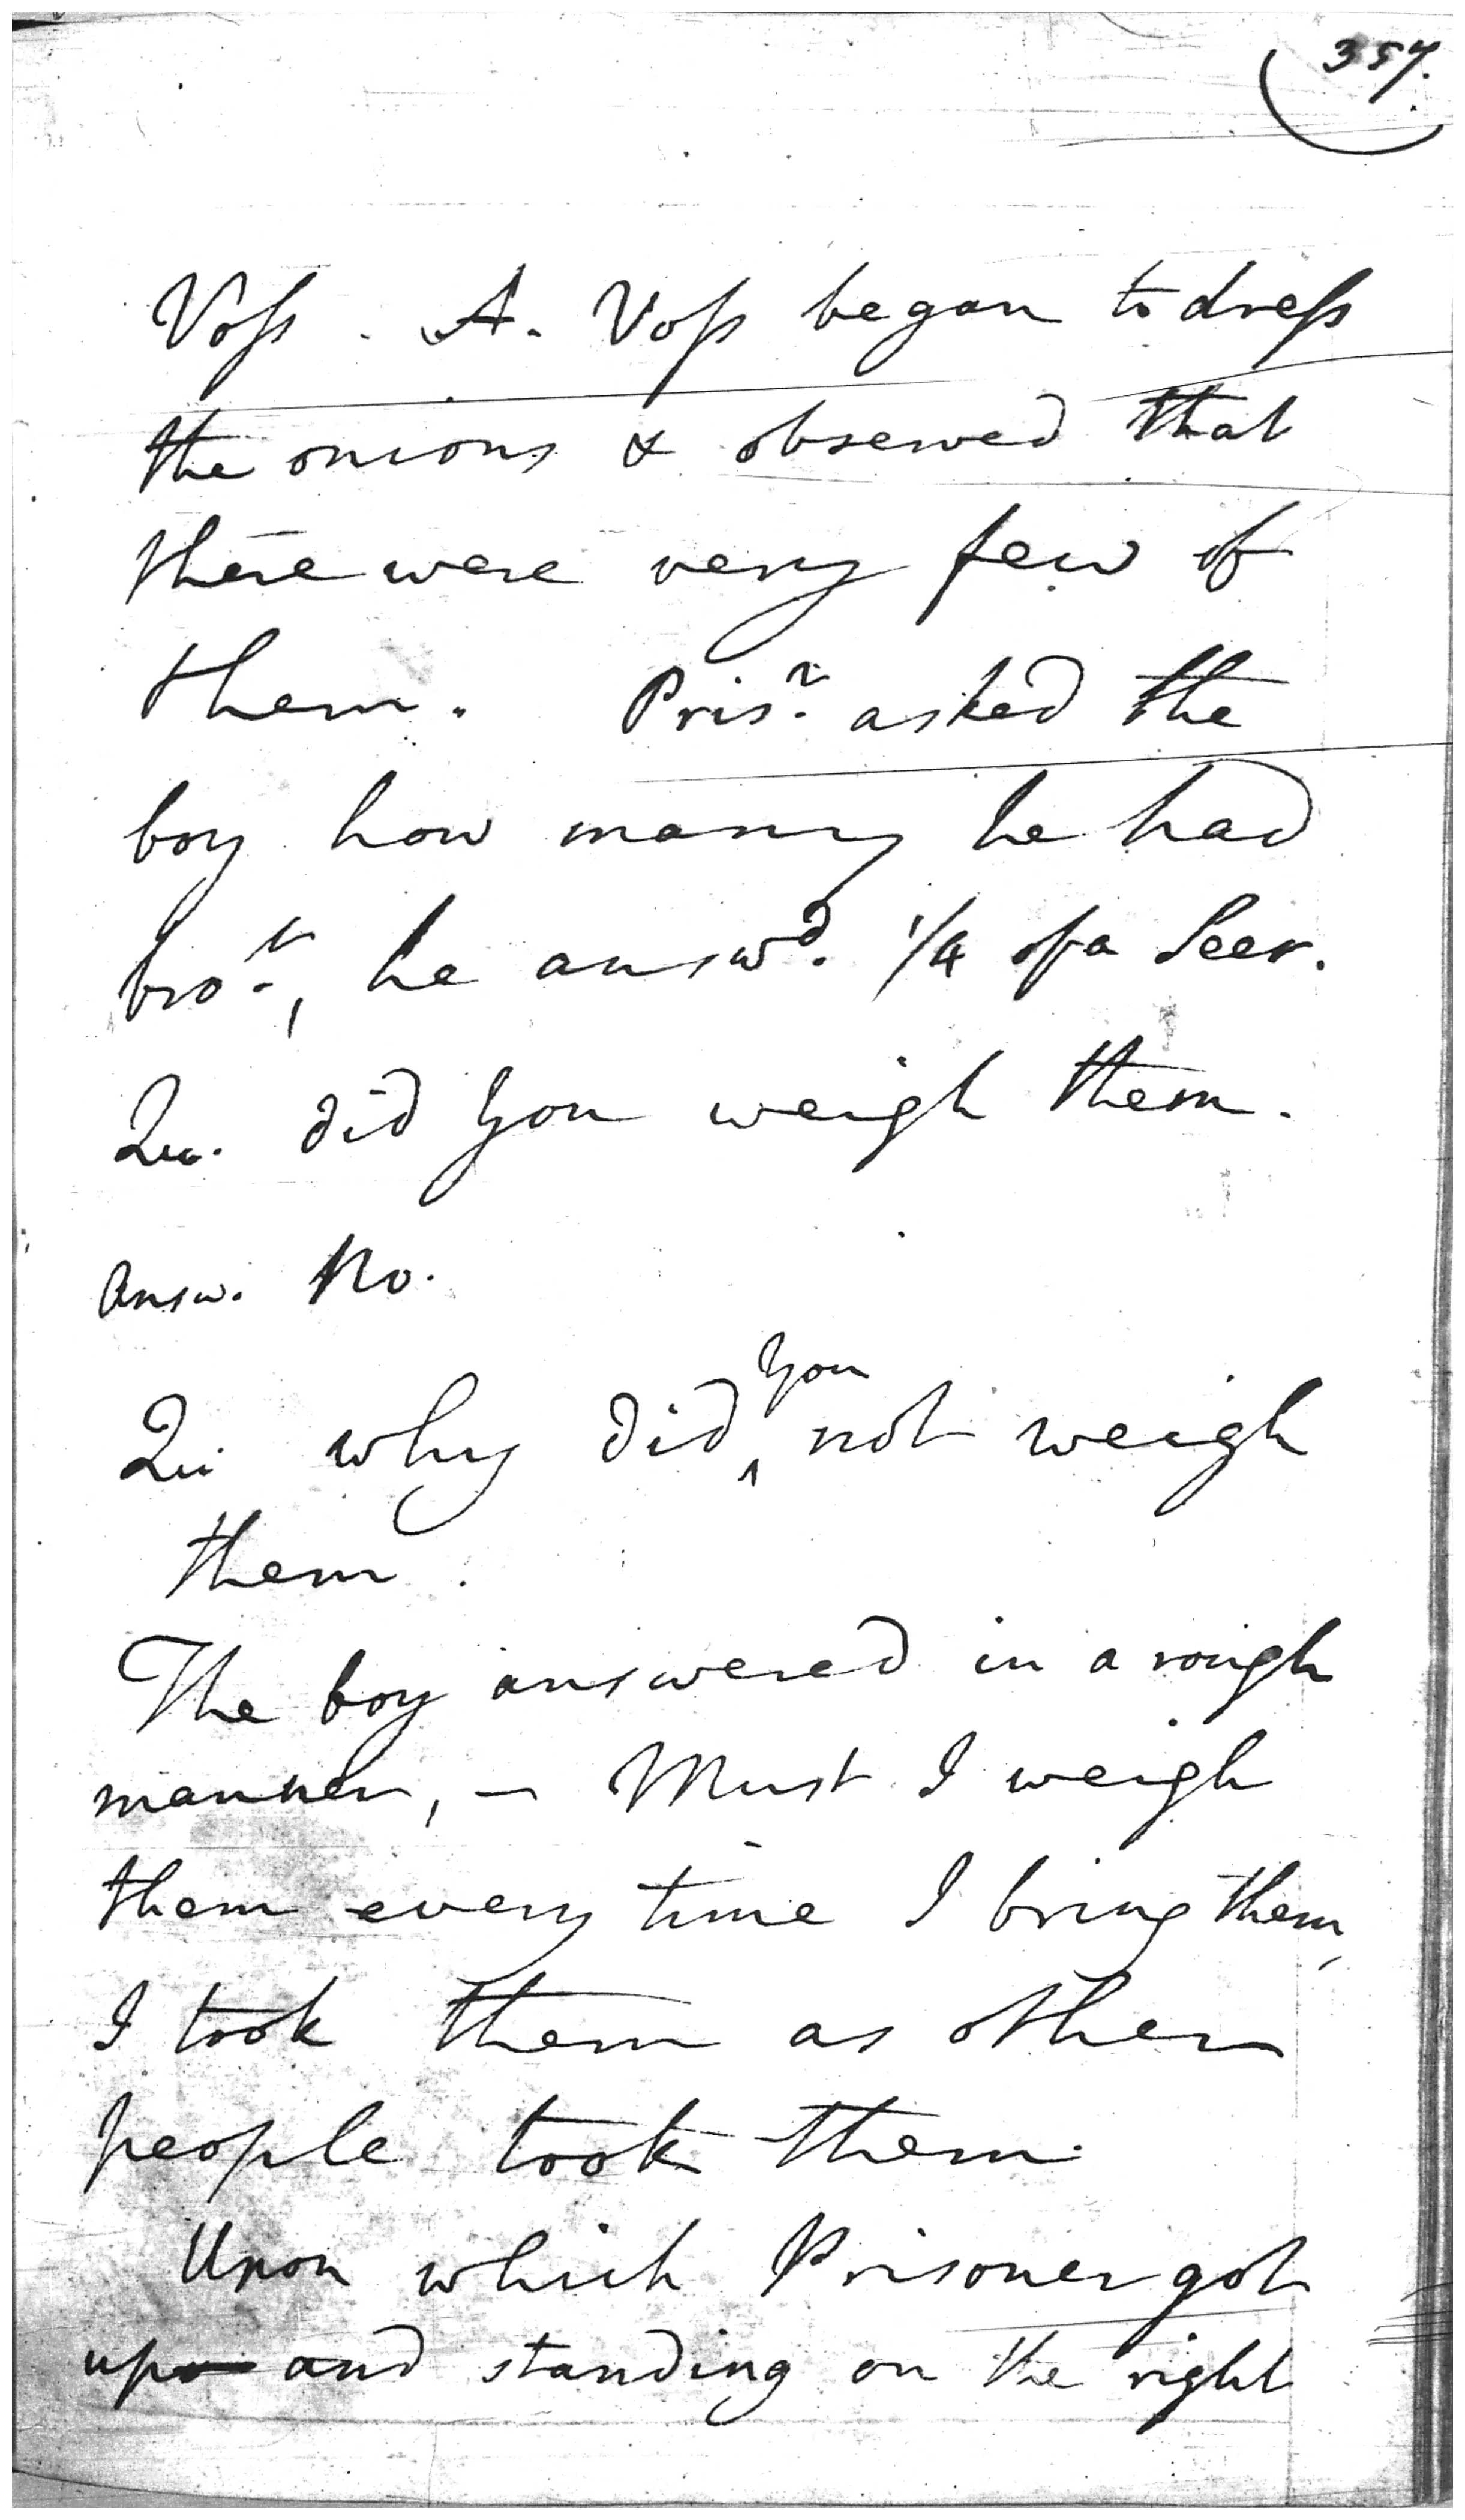 357.
Voſs. A. Voſs began to dreſs
the onions & observed that
there were very few of
them. Prisr. asked the
boy how many he had
brot., he answd. 1/4 of a Seer.
Qu. did you weigh them.
Answ. No.
Qu. why did you not weigh
them.
The boy answered in a rough
manner, – Must I weigh
them every time I bring them,
I took them as other
people took them.
Upon which Prisoner got
up and standing on the right